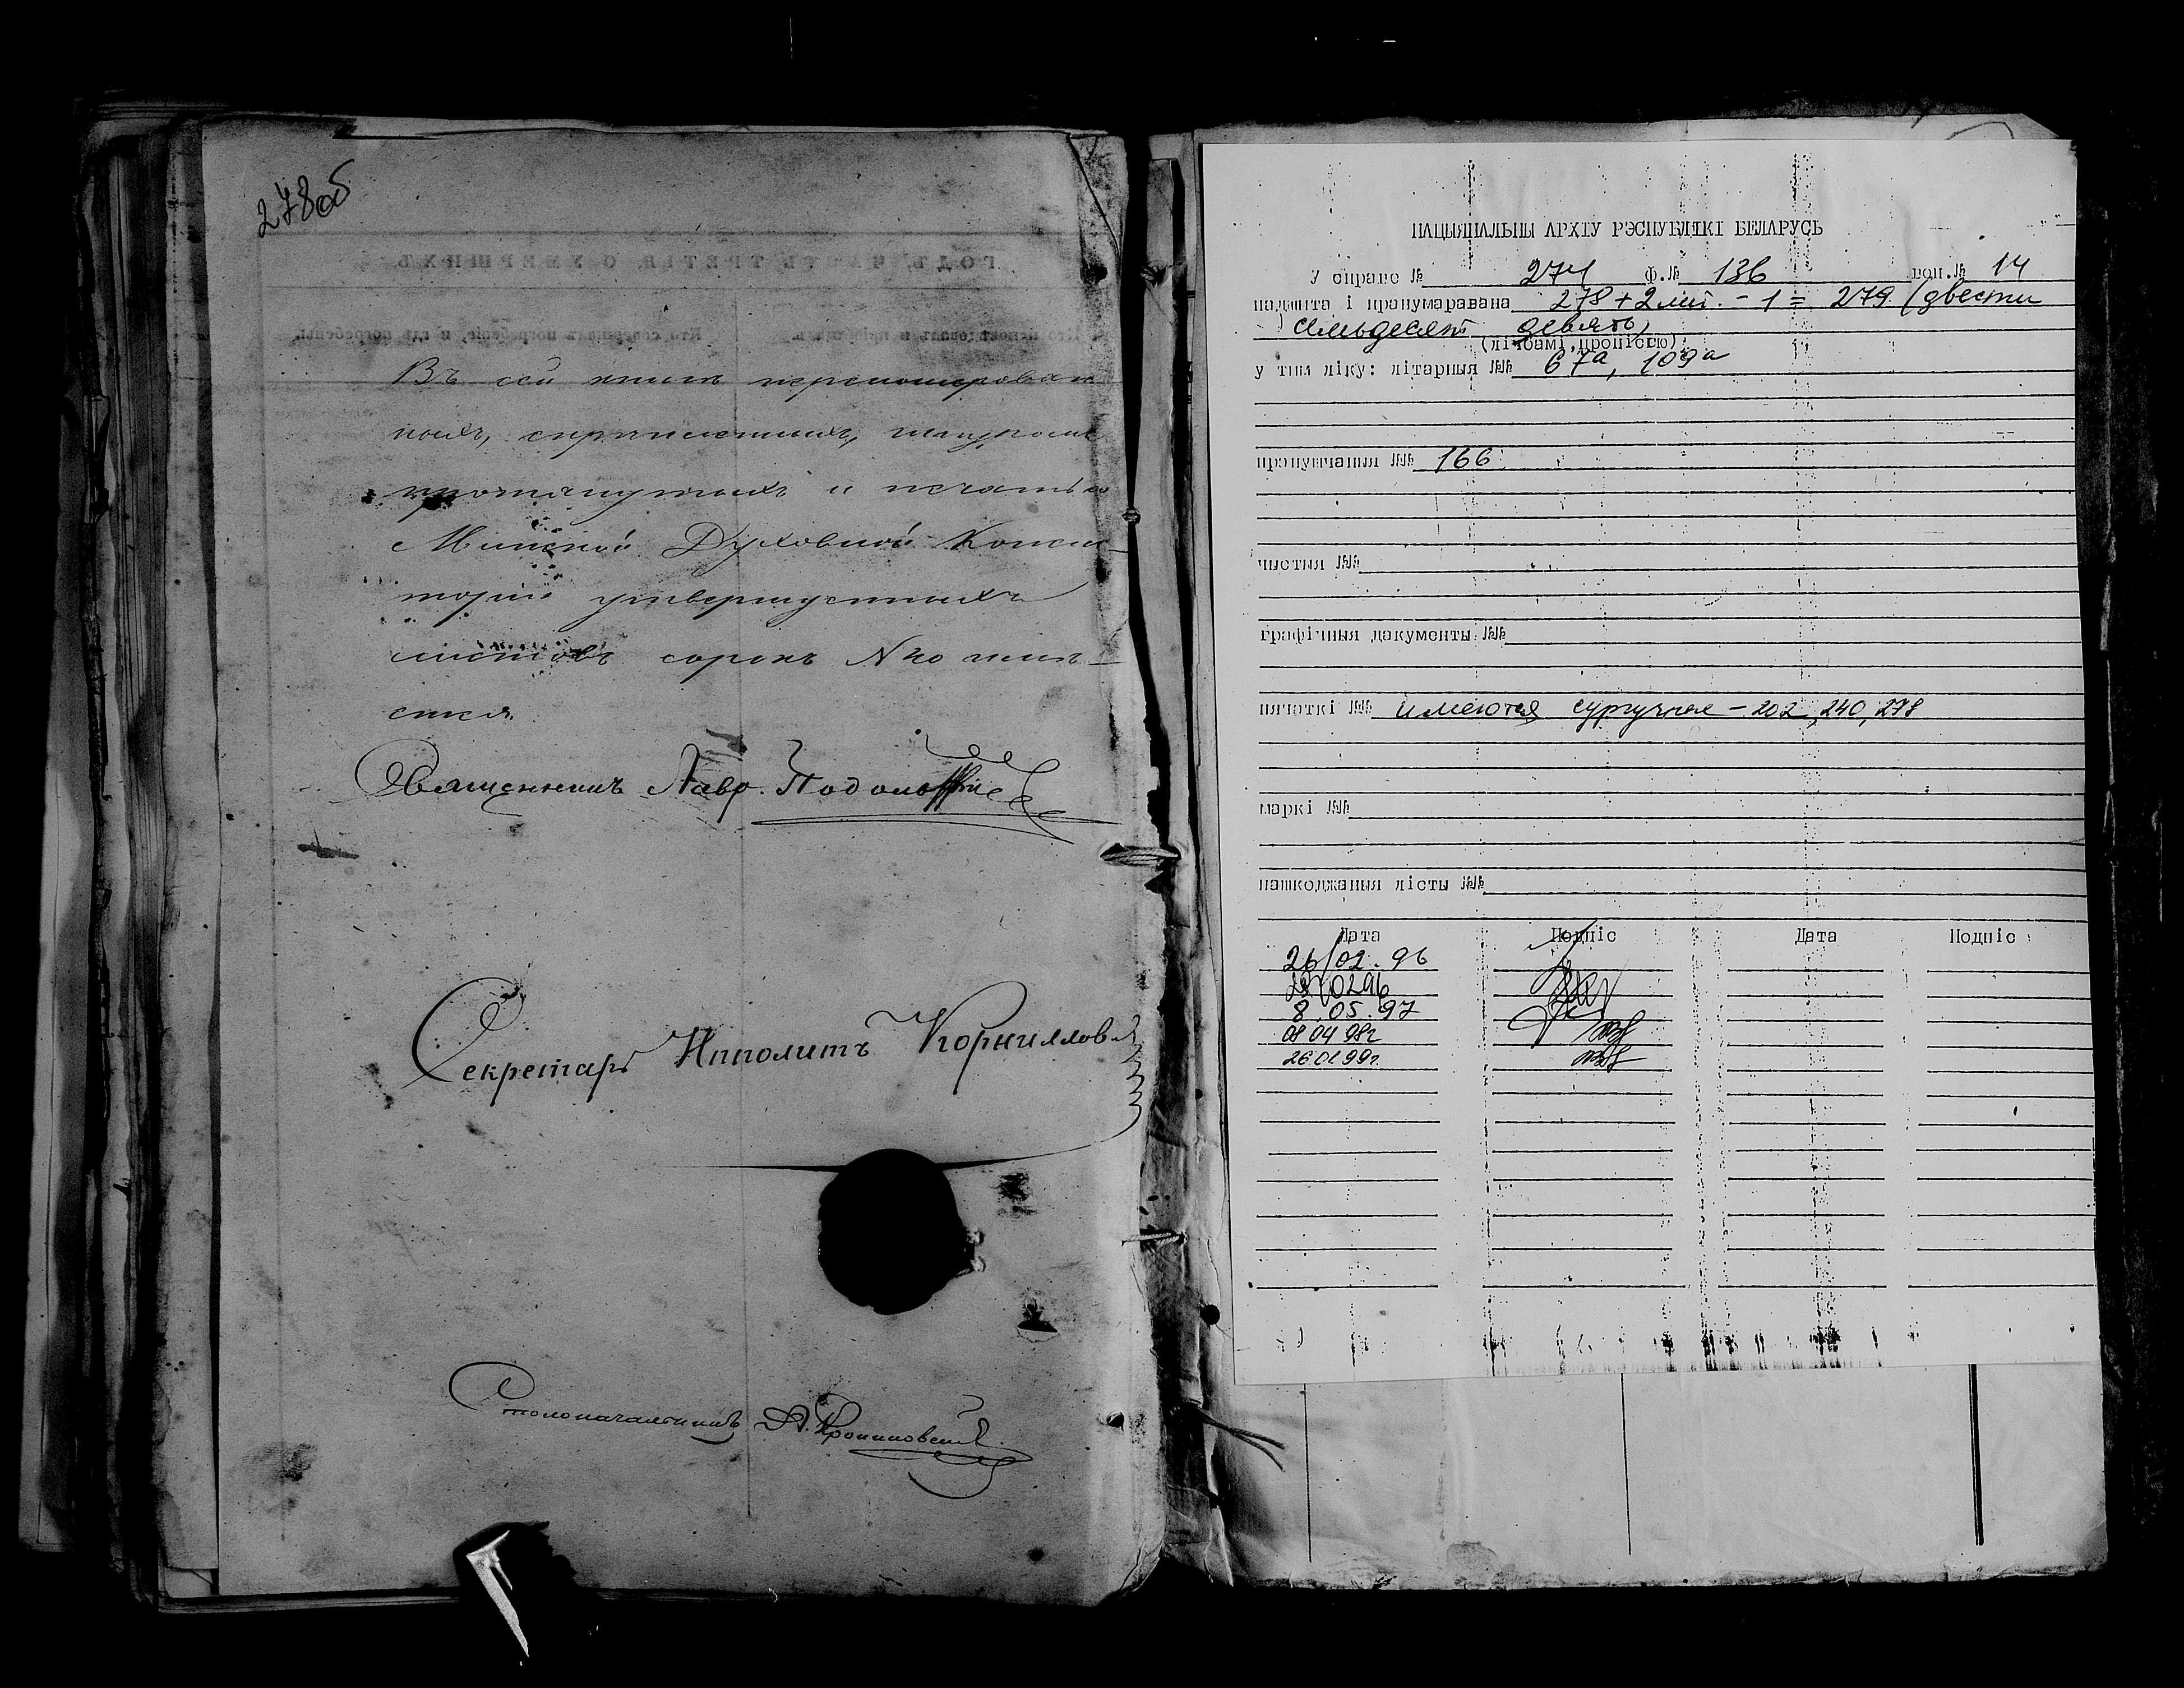 278об
ГОДЪ, ЧАСТЬ ТРЕТІЯ, О УМЕРШИХЪ.
Кто исповѣдовалъ и пріобщалъ. Кто совершалъ погребеніе, и гдѣ погребены.
Въ сей книгѣ перенумерован
ныхъ, скрѣпленныхъ, шнуромъ
протянутыхъ и печатью
Минской Духовной Консис-
торіи утвержденныхъ
листовъ сорокъ № 40 имѣ-
ется.
Священникъ Лавр. Подольскій
Секретарь Ипполитъ Корнилловъ
Столоначальникъ А.
НАЦЫЯНАЛЬНЫ АРХІУ РЭСПУБЛІКІ БЕЛАРУСЬ
У справе № 274 ф.№ 136 воп.№ 14
падшыта і пранумаравана 278 + 2 лит. - 1 = 279 (двести
семьдесят девять)
(лічбамі, пропіссю)
у тым ліку: літарныя №№ 67а, 109а
прапушчаныя №№ 166
чыстыя №№
графічныя дакументы №№
пячаткі №№ имеются сургучные - 202, 240, 278
маркі №№
пашкоджаныя лісты №№
Дата Подпіс Дата Подпіс
26/02.96
280296
8.05.97
08 04 98г
26 01 99г.